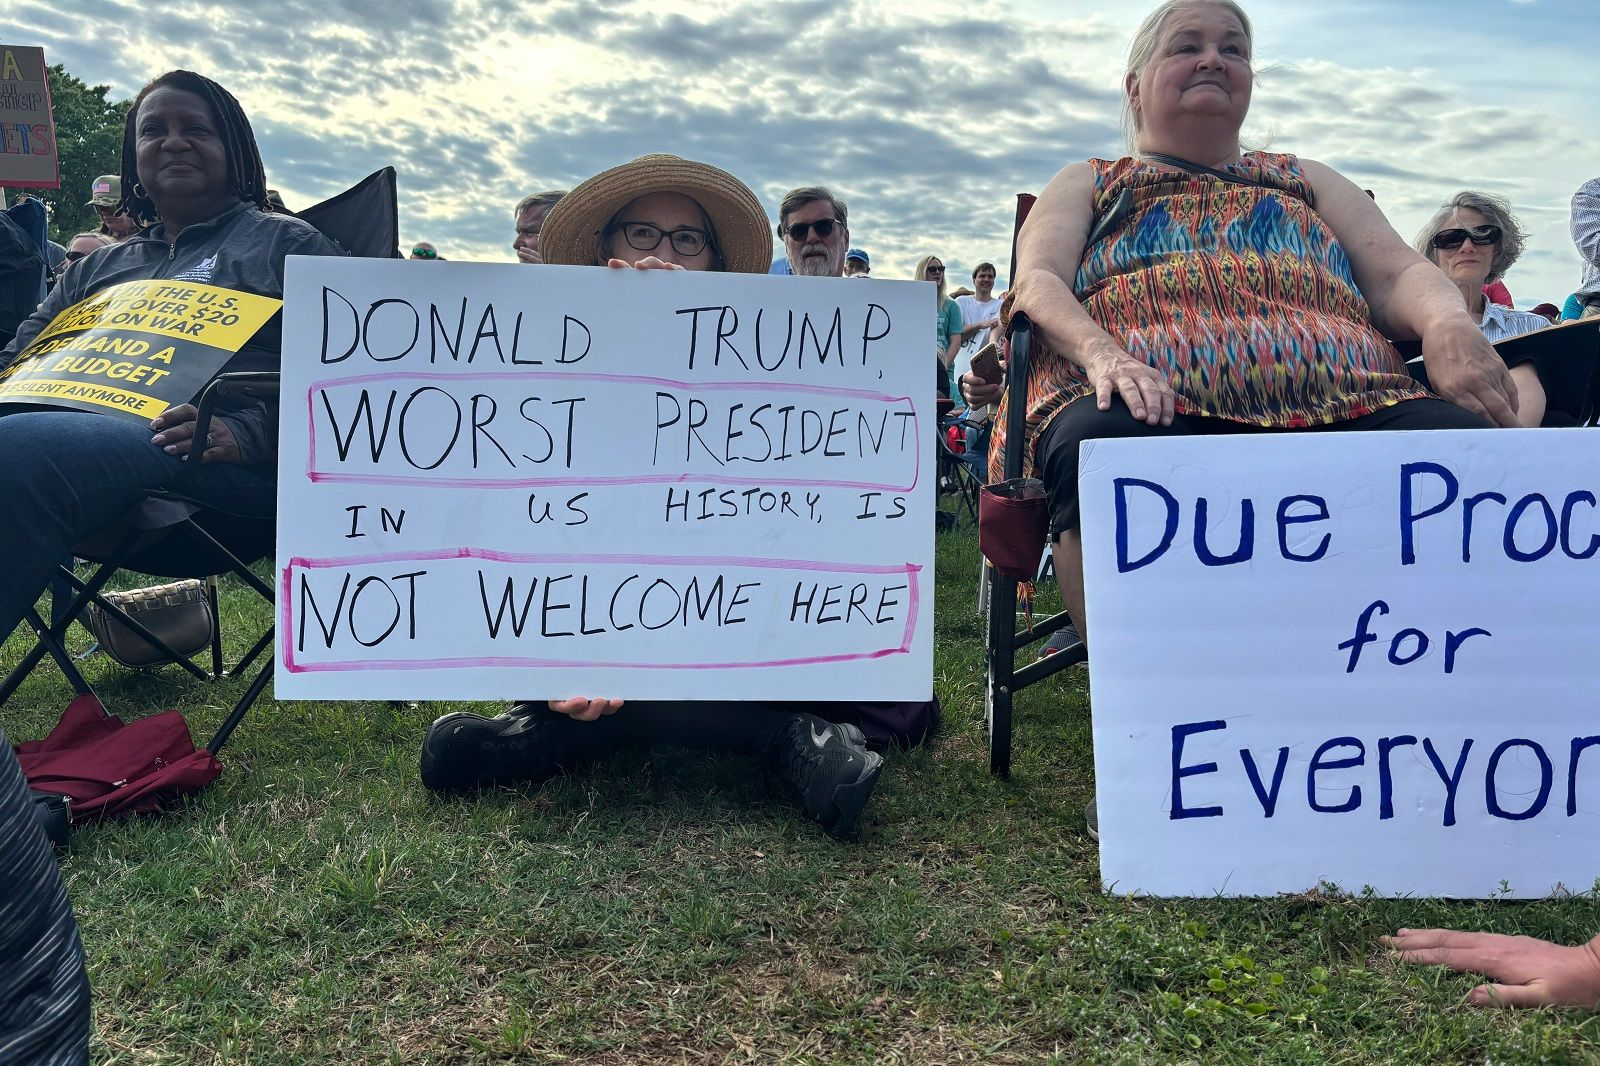 A
ETS
TH, THE U.S.
SPENT OVER $20
ILLION ON WAR
DEMAND A
AL BUDGET
SILENT ANYMORE
DONALD TRUMP,
WORST PRESIDENT
IN US HISTORY, IS
NOT WELCOME HERE
Due Proc
for
Everyon